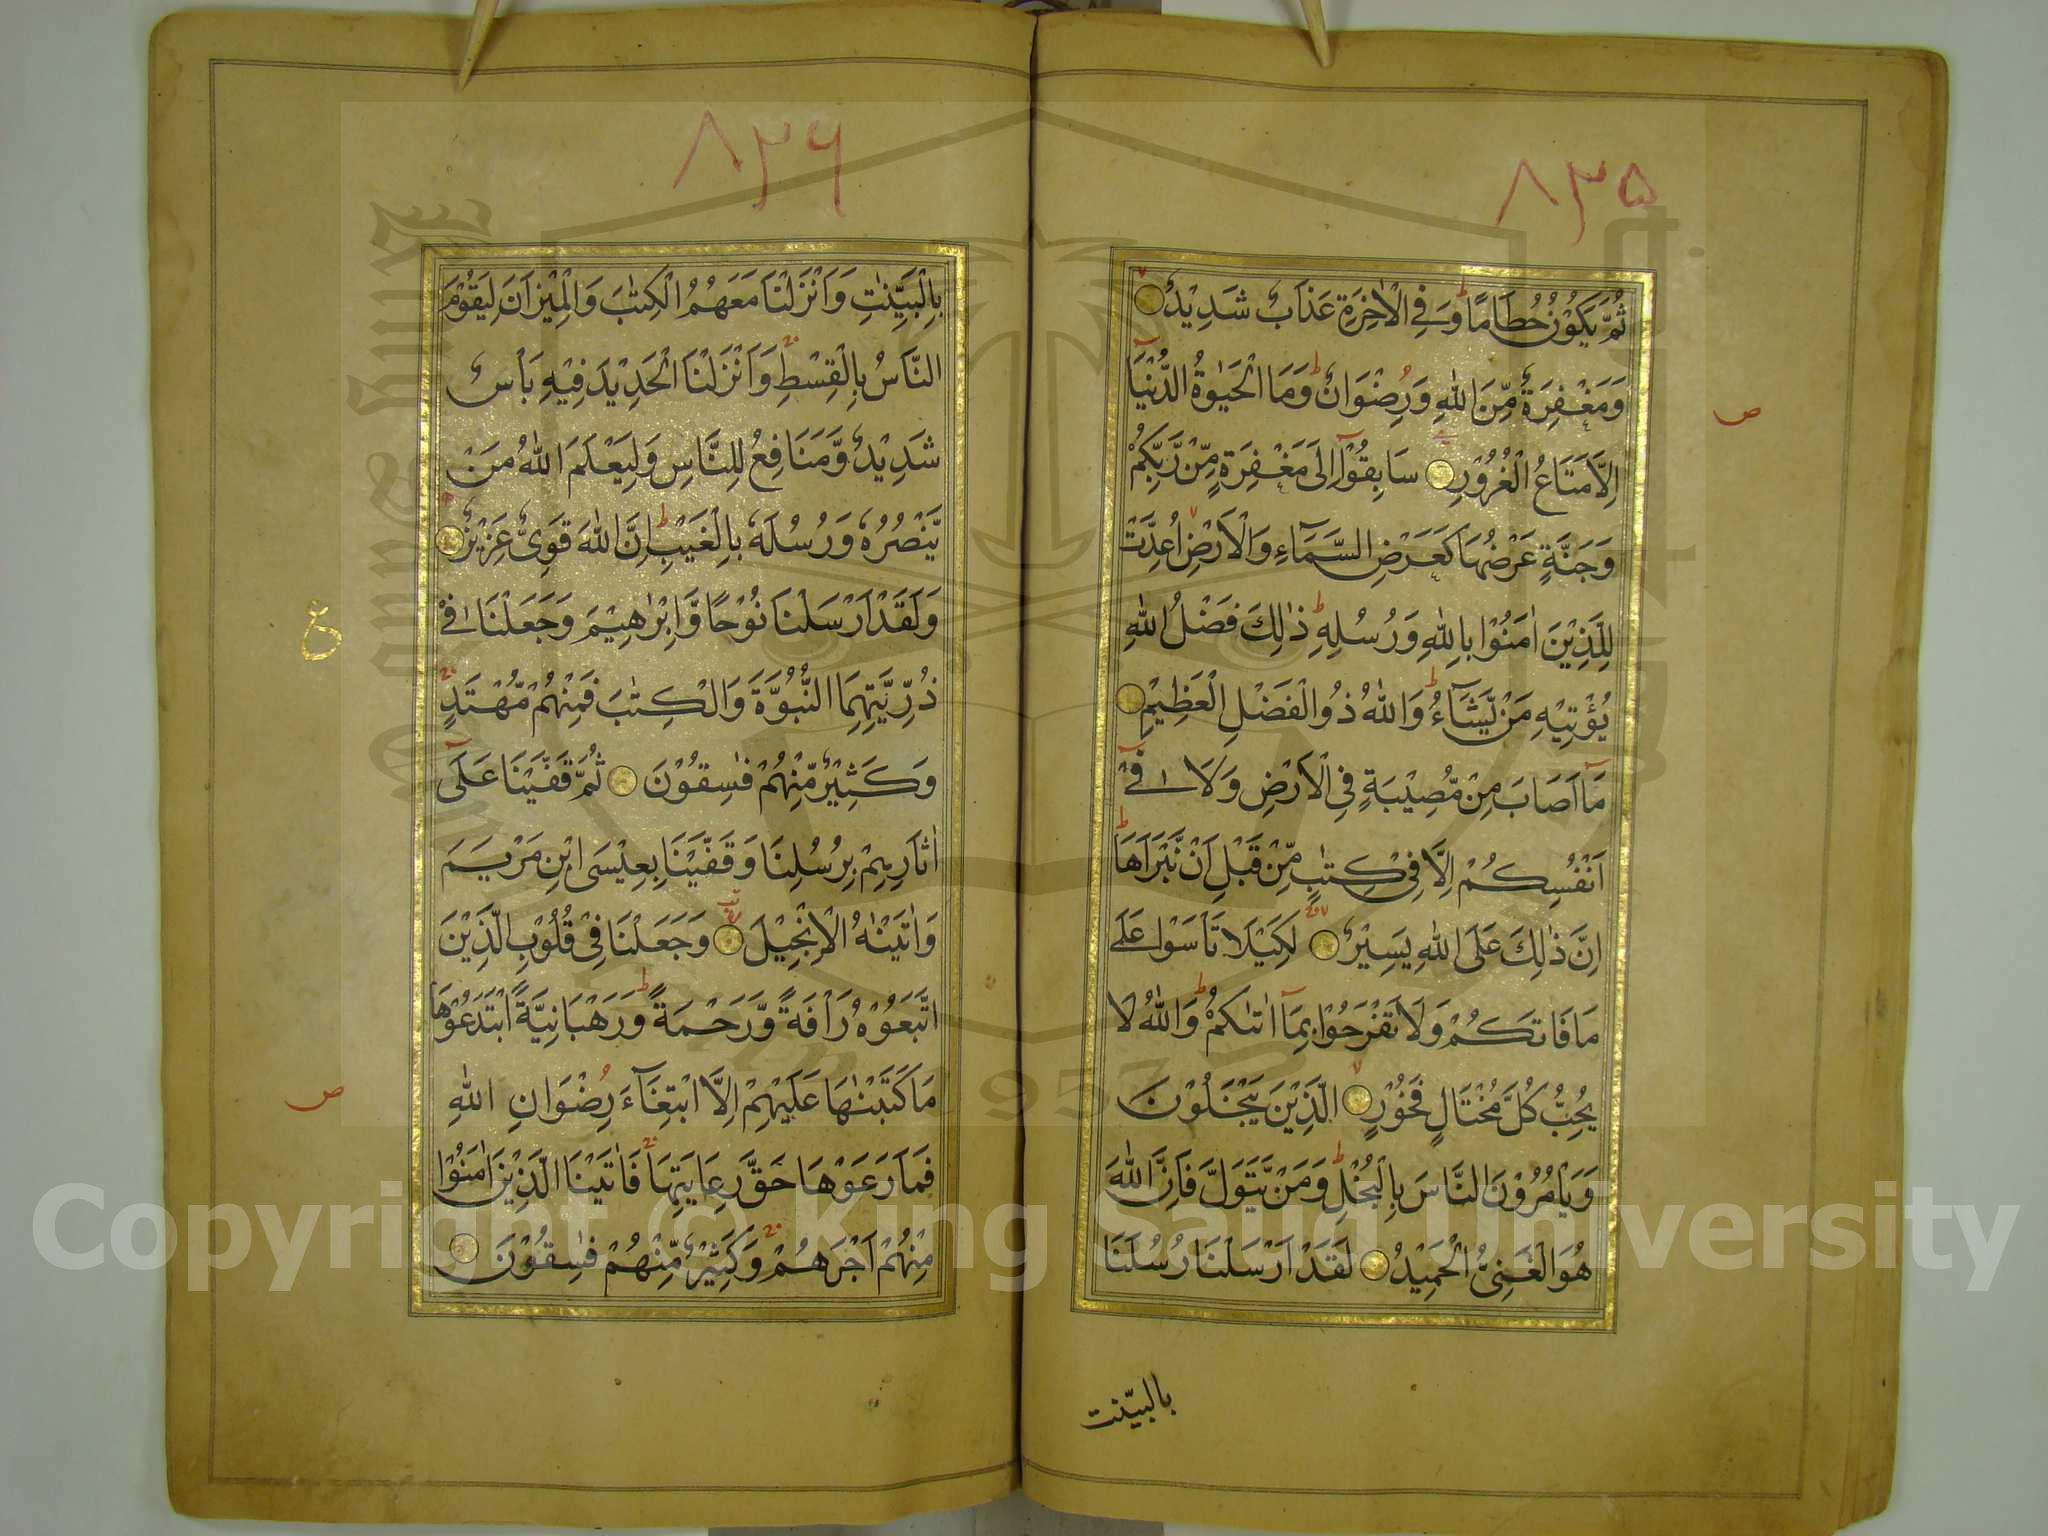 ۸۳۵
ثُمَّ يَكُوْنُ حُطَامًا ط وَفِي الْاٰخِرَةِ عَذَابٌ شَدِيْدٌ
وَمَغْفِرَةٌ مِّنَ اللّٰهِ وَرِضْوَانٌ ط وَمَا الْحَيٰوةُ الدُّنْيَا
اِلَّا مَتَاعُ الْغُرُوْرِ سَابِقُوْٓا اِلٰى مَغْفِرَةٍ مِّنْ رَّبِّكُمْ
وَجَنَّةٍ عَرْضُهَا كَعَرْضِ السَّمَآءِ وَالْاَرْضِ اُعِدَّتْ
لِلَّذِيْنَ اٰمَنُوْا بِاللّٰهِ وَرُسُلِهٖ ط ذٰلِكَ فَضْلُ اللّٰهِ
يُؤْتِيْهِ مَنْ يَّشَآءُ ط وَاللّٰهُ ذُوالْفَضْلِ الْعَظِيْمِ
مَآ اَصَابَ مِنْ مُّصِيْبَةٍ فِي الْاَرْضِ وَلَا فِيْٓ
اَنْفُسِكُمْ اِلَّا فِيْ كِتٰبٍ مِّنْ قَبْلِ اَنْ نَّبْرَاَهَا ط
اِنَّ ذٰلِكَ عَلَى اللّٰهِ يَسِيْرٌ لِكَيْلَا تَأْسَوْا عَلٰى
مَا فَاتَكُمْ وَلَا تَفْرَحُوْا بِمَآ اٰتٰىكُمْ ط وَاللّٰهُ لَا
يُحِبُّ كُلَّ مُخْتَالٍ فَخُوْرٍ الَّذِيْنَ يَبْخَلُوْنَ
وَيَأْمُرُوْنَ النَّاسَ بِالْبُخْلِ ط وَمَنْ يَّتَوَلَّ فَاِنَّ اللّٰهَ
هُوَ الْغَنِيُّ الْحَمِيْدُ لَقَدْ اَرْسَلْنَا رُسُلَنَا
بالبيّنٰت
ص
۸۳۶
بِالْبَيِّنٰتِ وَاَنْزَلْنَا مَعَهُمُ الْكِتٰبَ وَالْمِيْزَانَ لِيَقُوْمَ
النَّاسُ بِالْقِسْطِ وَاَنْزَلْنَا الْحَدِيْدَ فِيْهِ بَأْسٌ
شَدِيْدٌ وَّمَنَافِعُ لِلنَّاسِ وَلِيَعْلَمَ اللّٰهُ مَنْ
يَّنْصُرُهٗ وَرُسُلَهٗ بِالْغَيْبِ ط اِنَّ اللّٰهَ قَوِيٌّ عَزِيْزٌ
وَلَقَدْ اَرْسَلْنَا نُوْحًا وَّاِبْرٰهِيْمَ وَجَعَلْنَا فِيْ
ذُرِّيَّتِهِمَا النُّبُوَّةَ وَالْكِتٰبَ فَمِنْهُمْ مُّهْتَدٍ
وَكَثِيْرٌ مِّنْهُمْ فٰسِقُوْنَ ثُمَّ قَفَّيْنَا عَلٰٓى
اٰثَارِهِمْ بِرُسُلِنَا وَقَفَّيْنَا بِعِيْسَى ابْنِ مَرْيَمَ
وَاٰتَيْنٰهُ الْاِنْجِيْلَ وَجَعَلْنَا فِيْ قُلُوْبِ الَّذِيْنَ
اتَّبَعُوْهُ رَأْفَةً وَّرَحْمَةً ط وَرَهْبَانِيَّةً ابْتَدَعُوْهَا
مَا كَتَبْنٰهَا عَلَيْهِمْ اِلَّا ابْتِغَآءَ رِضْوَانِ اللّٰهِ
فَمَا رَعَوْهَا حَقَّ رِعَايَتِهَا فَاٰتَيْنَا الَّذِيْنَ اٰمَنُوْا
مِنْهُمْ اَجْرَهُمْ وَكَثِيْرٌ مِّنْهُمْ فٰسِقُوْنَ
ع
ص
Copyright © King Saud University
1957